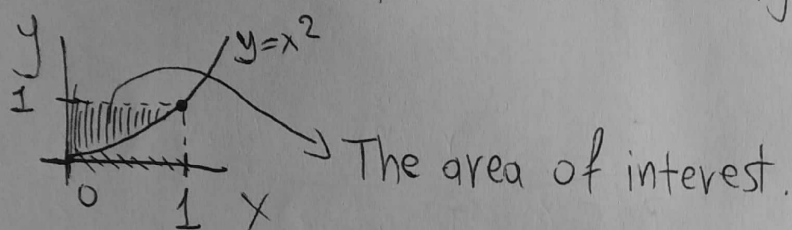 y
y=x²
1
The area of interest.
0
1
x